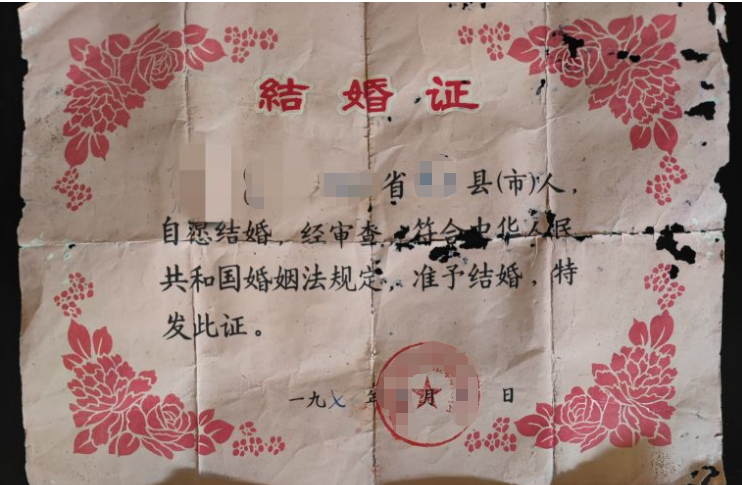 結婚证
省 县(市)人,
自愿结婚,经审查,符合中华人民
共和国婚姻法规定,准予结婚,特
发此证。
一九七 年 月 日